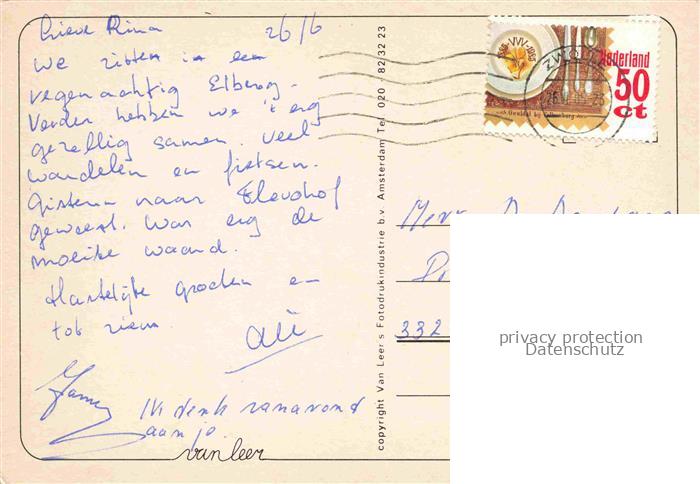 Lieve Rina 26/6
We zitten in een
regenachtig Elburg.
Verder hebben we 't erg
gezellig samen. Veel
wandelen en fietsen.
Gisteren naar Flevohof
geweest. Was erg de
moeite waard.
Hartelijke groeten en
tot ziens
Ali
Ik denk vanavond
aan je.
van Leer
copyright Van Leer's Fotodrukindustrie b.v. Amsterdam Tel. 020 - 82 32 23
1885-VVV-1985
Nederland
50
ct
ZWOLLE
Mevr
332
privacy protection
Datenschutz